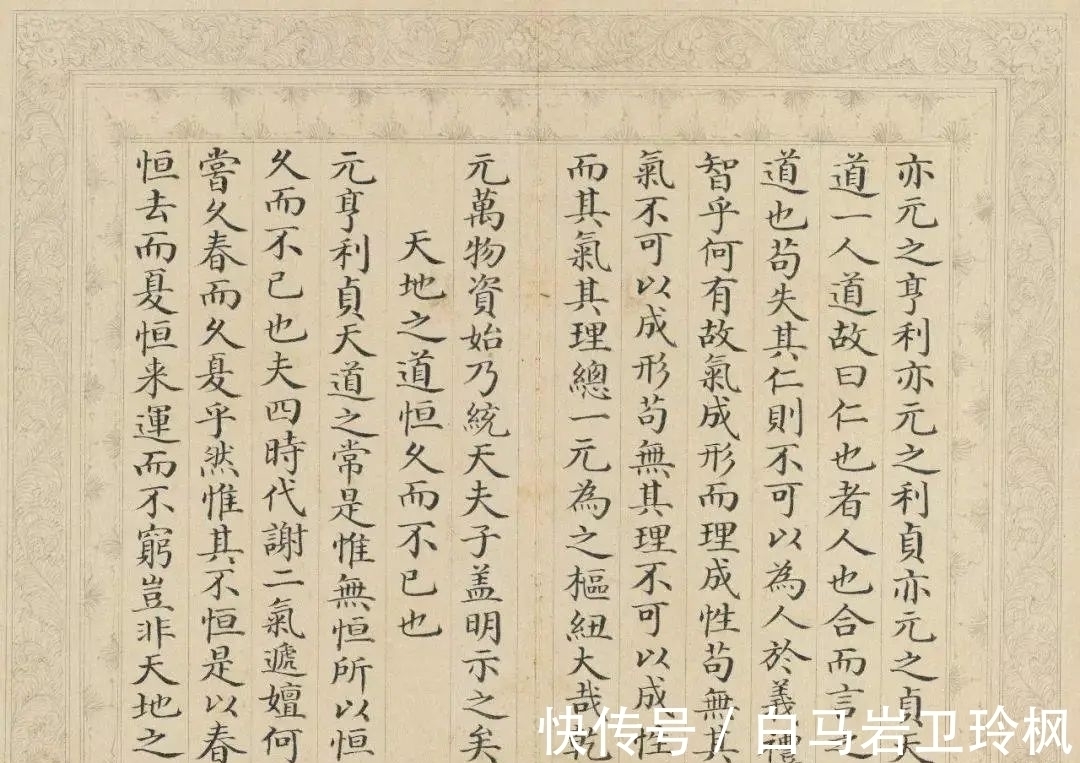 亦元之亨利亦元之利貞亦元之貞天
道一人道故曰仁也者人也合而言之
道也苟失其仁則不可以為人於義禮
智乎何有故氣成形而理成性苟無其
氣不可以成形苟無其理不可以成性
而其氣其理總一元為之樞紐大哉乾
元萬物資始乃統天夫子盖明示之矣
天地之道恒久而不已也
元亨利貞天道之常是惟無恒所以恒
久而不已也夫四時代謝二氣遞嬗何
嘗久春而久夏乎然惟其不恒是以春
恒去而夏恒来運而不窮豈非天地之
快传号/白马岩卫玲枫